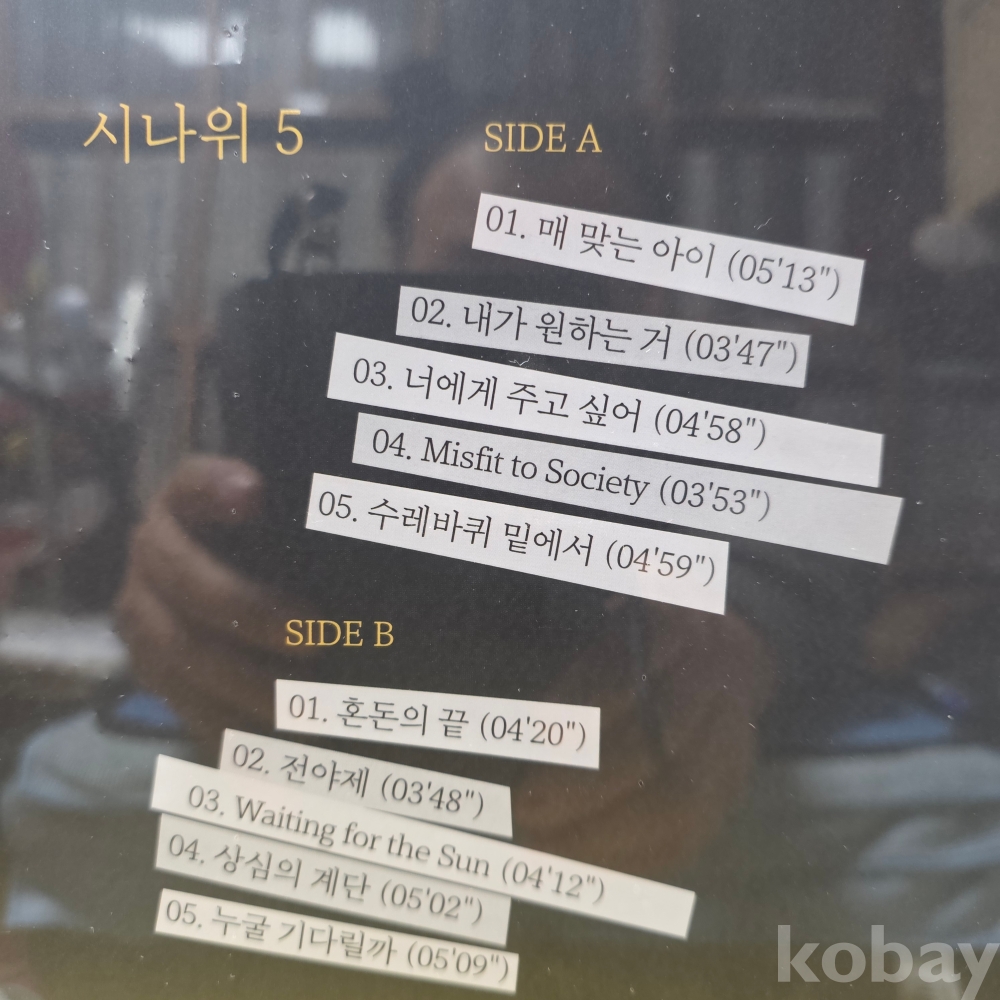 시나위 5
SIDE A
01. 매 맞는 아이 (05'13")
02. 내가 원하는 거 (03'47")
03. 너에게 주고 싶어 (04'58")
04. Misfit to Society (03'53")
05. 수레바퀴 밑에서 (04'59")
SIDE B
01. 혼돈의 끝 (04'20")
02. 전야제 (03'48")
03. Waiting for the Sun (04'12")
04. 상심의 계단 (05'02")
05. 누굴 기다릴까 (05'09")
kobay